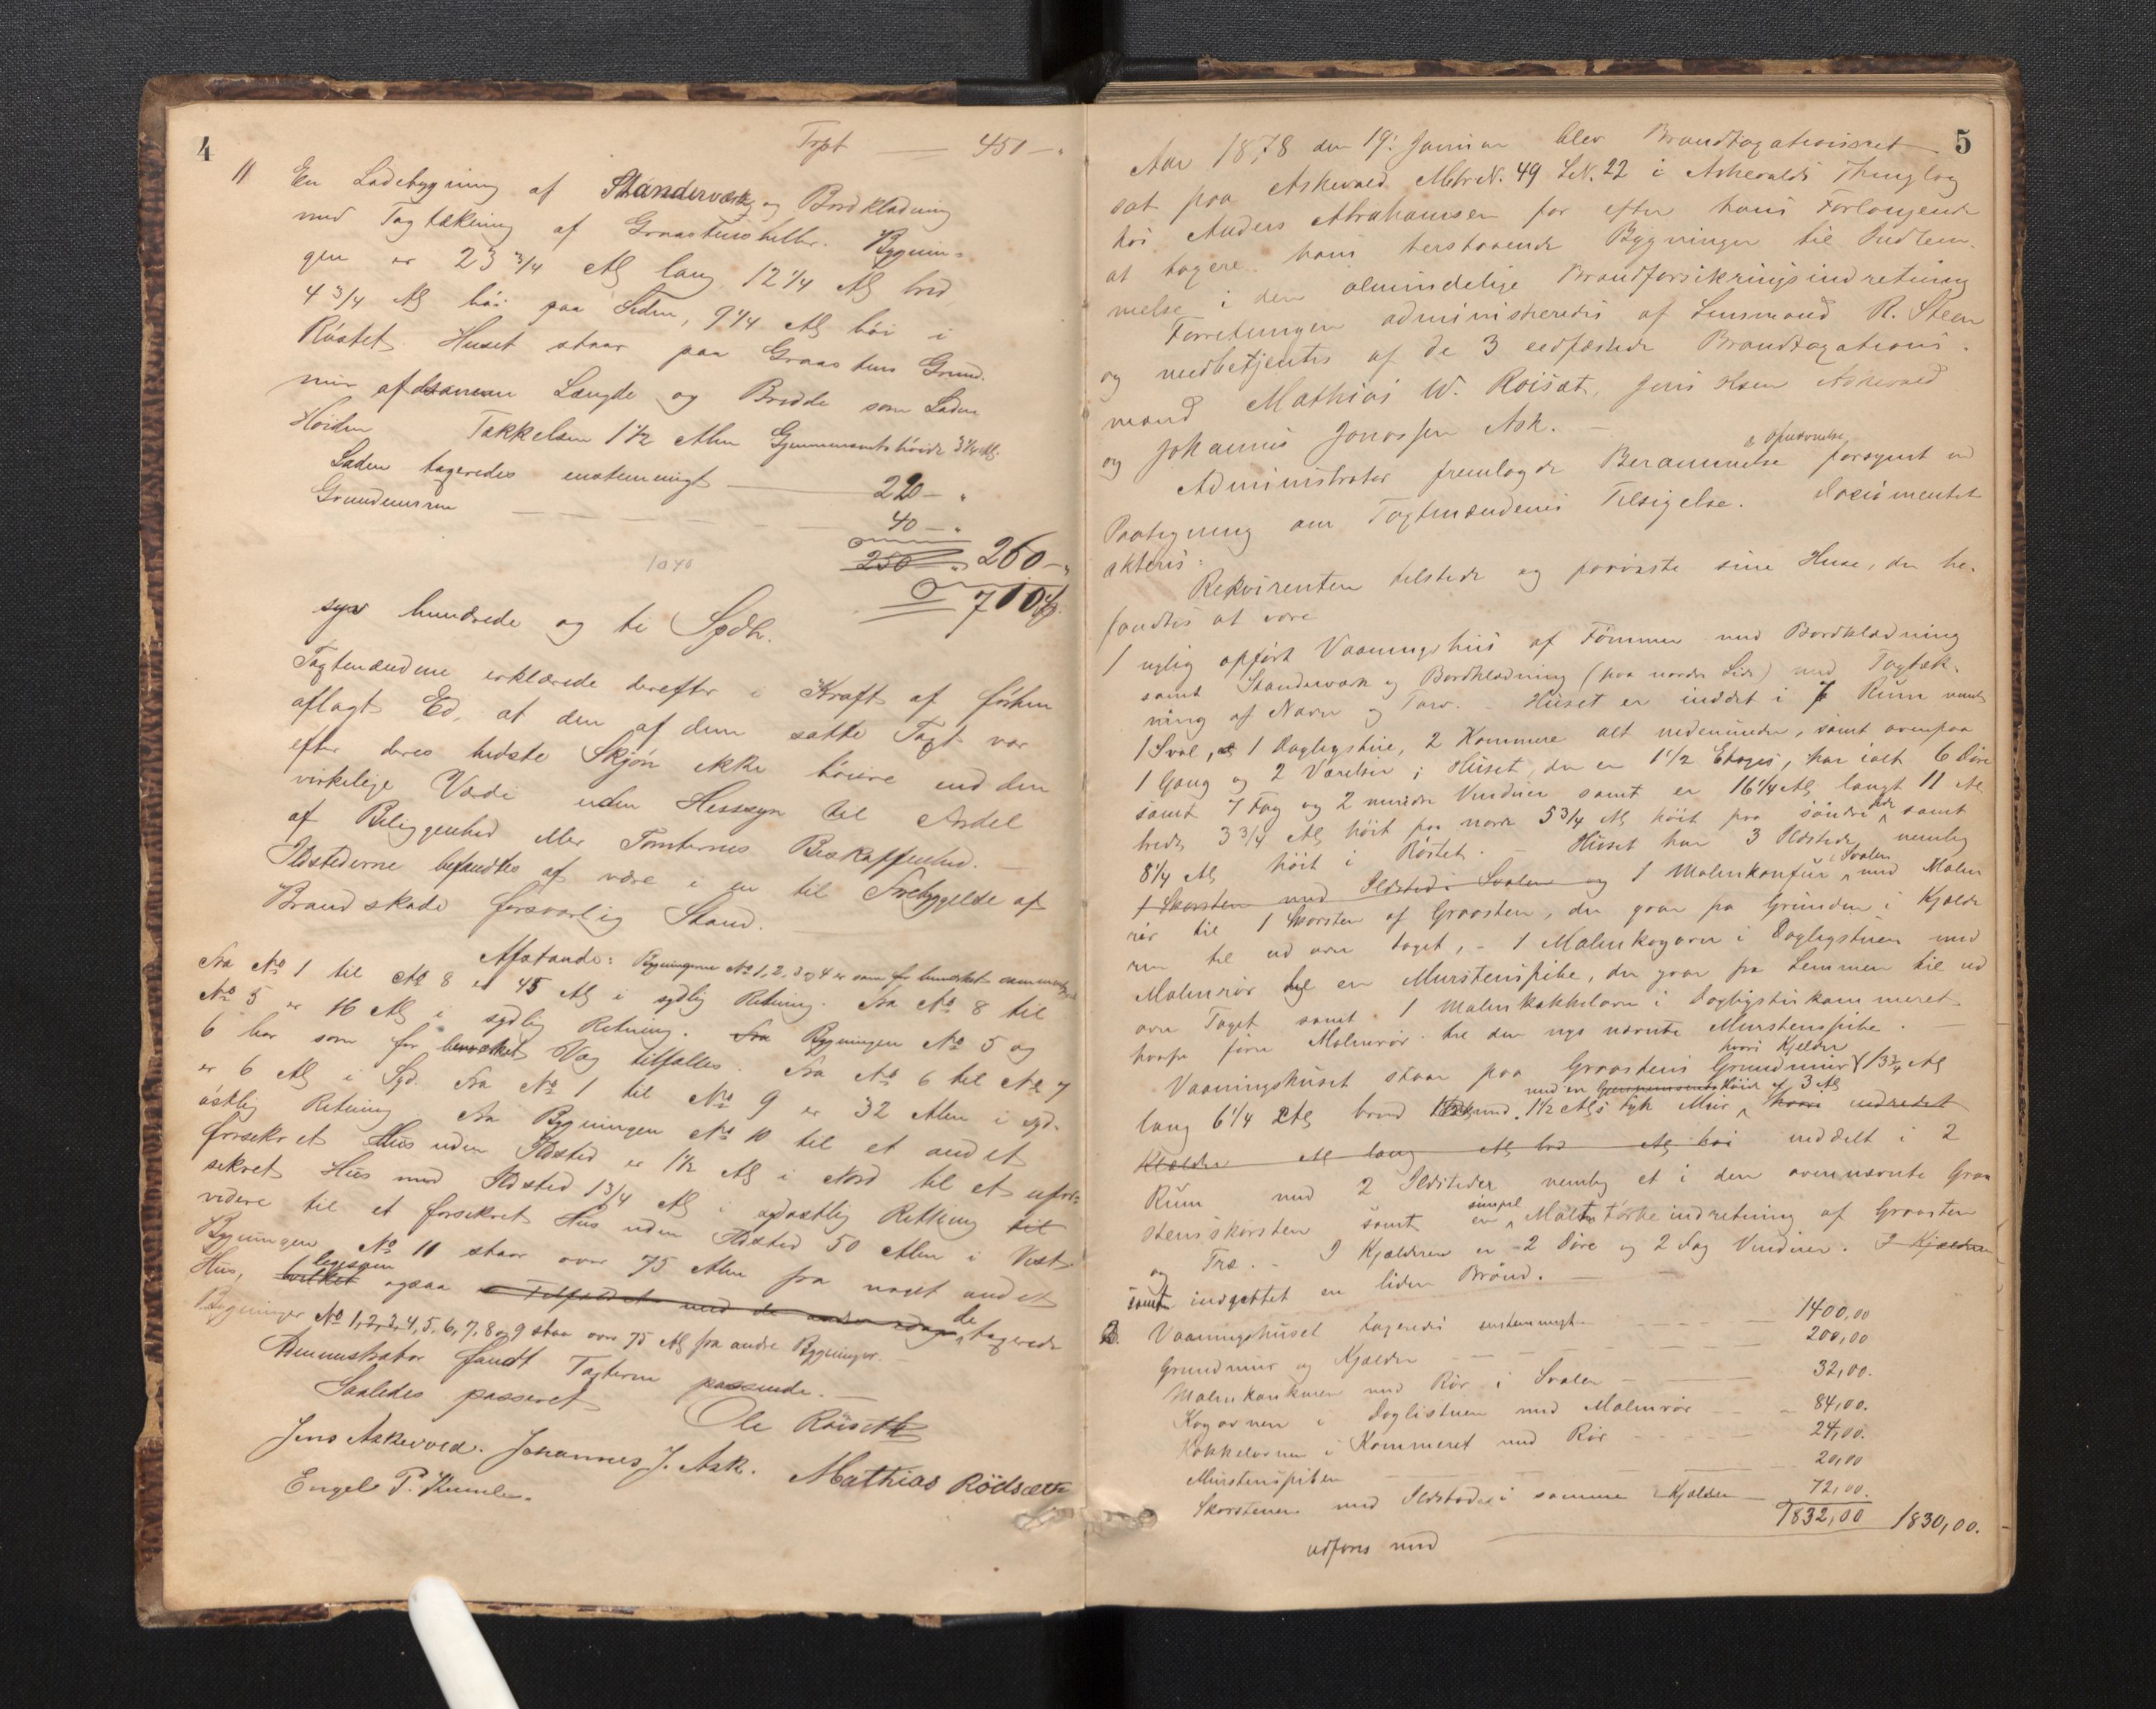 4
Trpt — 450 — "
11 En Ladebygning af Standerværk og Bordklædning
med Tagtækning af Graastensheller. Bygnin-
gen er 23 3/4 Al lang 12 1/4 Al bred
4 3/4 Al høi paa Siden, 9 1/4 Al høi i
Røstet. Huset staar paa Graastens Grund-
mur af samme Længde og Bredde som Laden
Høiden Tækkelsen 1 1/2 Alen Gjennemsnitshøide 3 1/4 Al.
Laden taxeredes enstemmigt — 220 — "
Grundmuren — — — 40 — "
1040 250 " 260 — "
710
syv hundrede og ti Spdlr.
Taxtmændene erklærede derefter i Kraft af forhen
aflagt Ed, at den af dem satte Taxt var
efter deres bedste Skjøn ikke høiere end den
virkelige Værdi uden Hensyn til Andel
af Beliggenhed eller Tomternes Beskaffenhed. —
Ildstederne befandtes at være i en til Forebyggelse af
Brandskade forsvarlig Stand. —
Afstande: Bygningerne No 1, 2, 3 og 4 er som før bemærket sammenbygd
Fra No 1 til No 8 er 45 Al i sydlig Retning. Fra No 8 til
No 5 er 16 Al i sydlig Retning. Fra Bygningen No 5 og
6 har som før bemærket Væg tilfælles. Fra No 6 til No 7
er 6 Al i Syd. Fra No 1 til No 9 er 32 Alen i syd-
østlig Retning Fra Bygningen No 10 til et andet
forsekret Hus uden Ildsted er 1 1/2 Al i Nord til et ufor-
sekret Hus med Ildsted 1 3/4 Al i sydøstlig Retning til
videre til et forsekret Hus uden Ildsted 50 Alen i Vest
Bygningen No 11 staar over 75 Alen fra noget andet
Hus, hvilket ligesom ogsaa de taxerede
Bygninger No 1, 2, 3, 4, 5, 6, 7, 8 og 9 staa over 75 Al fra andre Bygninger. —
Administrator fandt Taxterne passende. —
Saaledes passeret
Ole Röiseth
Jens Askevold. Johannes J. Ask. Mathias Rödsæth
Engel P.
5
Aar 1878 den 19: Januar blev Brandtaxationsret
sat paa Askevold Matr N. 49 L N. 22 i Askevolds Thinglag
hos Anders Abrahamsen for efter hans Forlangende
at taxere hans herstaaende Bygninger til Indlem-
melse i den almindelige Brandforsikringsindretning
Forretningen administreredes af Lensmand R. Steen
og medbetjentes af de 3 eedfæstede Brandtaxations-
mænd Mathias W. Röisæt, Jens Askevold
og Johannes Jonassen Ask. —
Administrator fremlagde Berammelse & Opnævnelse forsynet m
Paategning om Taxtmændenes Tilsigelse. Documentet
akteres:
Rekvirenten tilstede og paaviste sine Huse, der be-
fandtes at være
1 nylig opført Vaaningshus af Tømmer med Bordklædning
samt Standerværk og Bordklædning (paa nordre Side) med Tagtæk-
ning af Næver og Torv. — Huset er inddelt i 7 Rum nemlig
1 Sval, 1 Dagligstue, 2 Kammere alt nedenunder, samt ovenpaa
1 Gang og 2 Værelser; Huset, der er 1 1/2 Etages, har ialt 6 Döre
samt 7 Fag og 2 mindre Vinduer samt er 16 1/4 Al langt 11 Al
bredt 3 3/4 Al høit paa nordre 5 3/4 Al høit paa søndre Side samt
8 1/4 Al høit i Røstet. — Huset har 3 Ildsteder nemlig
1 Skorsten med Ildsted i Svalen og 1 Malmkomfür i Svalen med Malm
rör til 1 Skorsten af Graasten, der gaar fra Grunden i Kjælde
ren til ud over Taget, — 1 Malmkogovn i Dagligstuen med
Malmrör til en Murstenspibe, der gaar fra Lemmen til ud
over Taget samt 1 Malmkakkelovn i Dagligstuekammeret
hvorfra fører Malmrör til den nys nævnte Murstenspibe. —
Vaaningshuset staar paa Graastens Grundmur hvori Kjelder 13 3/4 Al
lang 6 1/4 Al bred med 1 1/2 Al tyk Mur med en Gjennemsnitshöide af 3 Al indredet
Kjelder Al lang Al bred Al høi inddelt i 2
Rum med 2 Ildsteder nemlig et i den ovennævnte Graa
stensskorsten samt en simpel Maltörkeindretning af Graasten
og Træ. — I Kjælderen er 2 Döre og 2 Fag Vinduer. I Kjælderen
samt indsattet en liden Brönd. —
Vaaningshuset taxeredes enstemmigt — — — 1400,00
Grundmur og Kjælder — — — 200,00
Malmkomfuren med Rör i Svalen — — 32,00.
Kogovnen i Daglistuen med Malmrör — — 84,00.
Kakkelovnen i Kammeret med Rör — — 24,00.
Murstenspiben — — 20,00
Skorstenen med Ildsteder i samme i Kjælder — 72,00.
1832,00 1830,00.
udføres med —